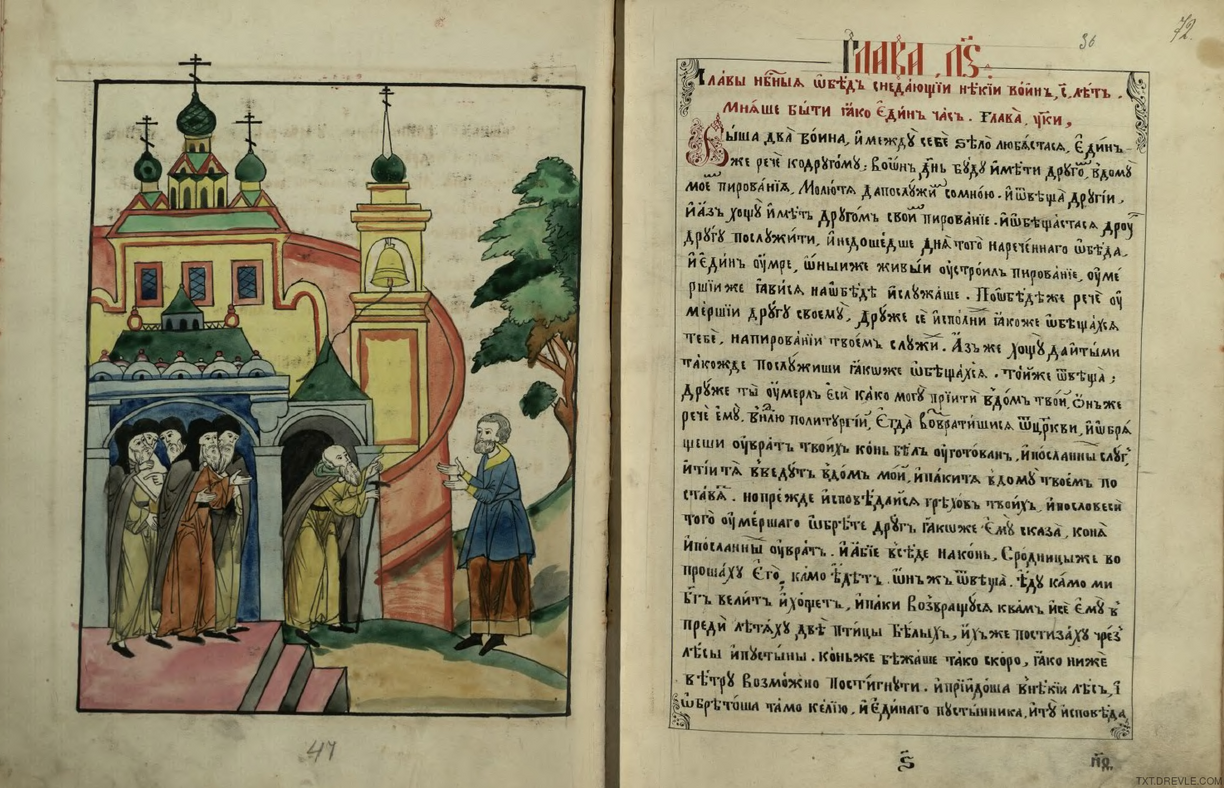 47
72.
36
Глава л҃ѕ.
Славы нбⷭ҇ныѧ ѡбѣдъ снеда́ющїи нѣ́кїи во́инъ, т҃, лѣ́тъ.
Мнѧ́ше бы́ти ꙗ҆́кѡ є҆ди́нъ ча́съ. Глава̀,
Бы́ша два̀ во́ина, и҆ междꙋ̀ себѐ ѕѣ́ло любѧ́стасѧ, є҆ди́нъ
же речѐ кодрꙋго́мꙋ, во ѡ҆́нъ дн҃ь бꙋ́дꙋ и҆мѣ́ти дрꙋго́, вдомꙋ̀
мое́ пирова́нїѧ, молю́тѧ дапослꙋжи́ сомно́ю. и҆ ѿвѣща̀ дрꙋгі́и,
и҆ а҆́зъ хощꙋ̀ и҆мѣ́ть дрꙋго́мъ свои́ пирова́нїе. и҆ ѡбѣща́стасѧ дрꙋ́
дрꙋ́гꙋ послꙋжи́ти, и҆ недоше́дше днѧ̀ того̀ нарече́ннаго ѡбѣ́да,
и҆ є҆ди́нъ ᲂу҆́мре, ѡ҆́ныиже живы́и ᲂу҆стро́илъ пирова́нїе, ᲂу҆ме́
ршїиже ꙗ҆ви́сѧ наѡбѣ́дѣ и҆ слꙋжа́ше. поѡбѣ́дѣже речѐ ᲂу҆
ме́ршїи дрꙋ́гꙋ своемꙋ̀, дрꙋ́же сѐ и҆спо́лни ꙗ҆́коже ѡбѣща́хсѧ
тебѐ, напирова́нїи твое́мъ слꙋжи́. а҆́зъже хощꙋ̀ даи́ ты́ми
та́кожде послꙋжиши ꙗ҆́кѡже ѡбѣща́хсѧ. то́йже ѿвѣща̀;
дрꙋ́же ты̀ ᲂу҆́мерлъ є҆сѝ ка́ко могꙋ̀ прїитѝ вдо́мъ тво́й, ѻ҆́нъже
речѐ є҆мꙋ̀, внⷣлю политꙋргі́й, є҆гда̀ возврати́шисѧ ѿ цр҃кви, и҆ ѡбрѧ́
щеши ᲂу҆вра́тъ твои́хъ ко́нь бѣ́лъ ᲂу҆гото́ванъ, и҆ по́сланны слꙋг,
и҆ ті́и тѧ̀ введꙋ́тъ вдо́мъ мо́й, и҆ па́ки тѧ̀ вдомꙋ̀ твое́мъ по
ста́вѧ. нопре́жде и҆сповѣ́дайсѧ грѣхо́въ твои́хъ, и҆ пословесѝ
того̀ ᲂу҆ме́ршаго ѡбрѣ́те дрꙋ́гъ ꙗ҆́кѡже є҆мꙋ̀ сказа̀, конѧ̀
и҆ по́сланны ᲂу҆вра́тъ. и҆ а҆́бїе всѣ́де нако́нь, сро́дницыже во
проша́хꙋ є҆го̀, ка́мо ѣ҆́детъ. ѻ҆нже ѿвѣща̀. ѣ҆́дꙋ ка́мо ми
бг҃ъ вели́тъ и҆ хо́щетъ, и҆ па́ки возвращꙋ́сѧ квамъ, и҆ сѐ є҆мꙋ̀ в
предѝ лѣтѧ́хꙋ двѣ̀ пти́цы бѣ́лыхъ, и҆́хъже постиза́хꙋ чрез̾
лѣ́сы и҆ пꙋсты́ны. ко́ньже бѣжа́ше та́ко ско́ро, ꙗ҆́ко ниже
вѣ́трꙋ возмо́жно пости́гнꙋти. и҆ прїидо́ша внѣ́кїи лѣ́съ, і҆
ѡбрѣто́ша та́мо ке́лїю, и҆ є҆ди́наго пꙋсты́нника, и҆ тꙋ̀ и҆сповѣ́да
TXT.DREVLE.COM